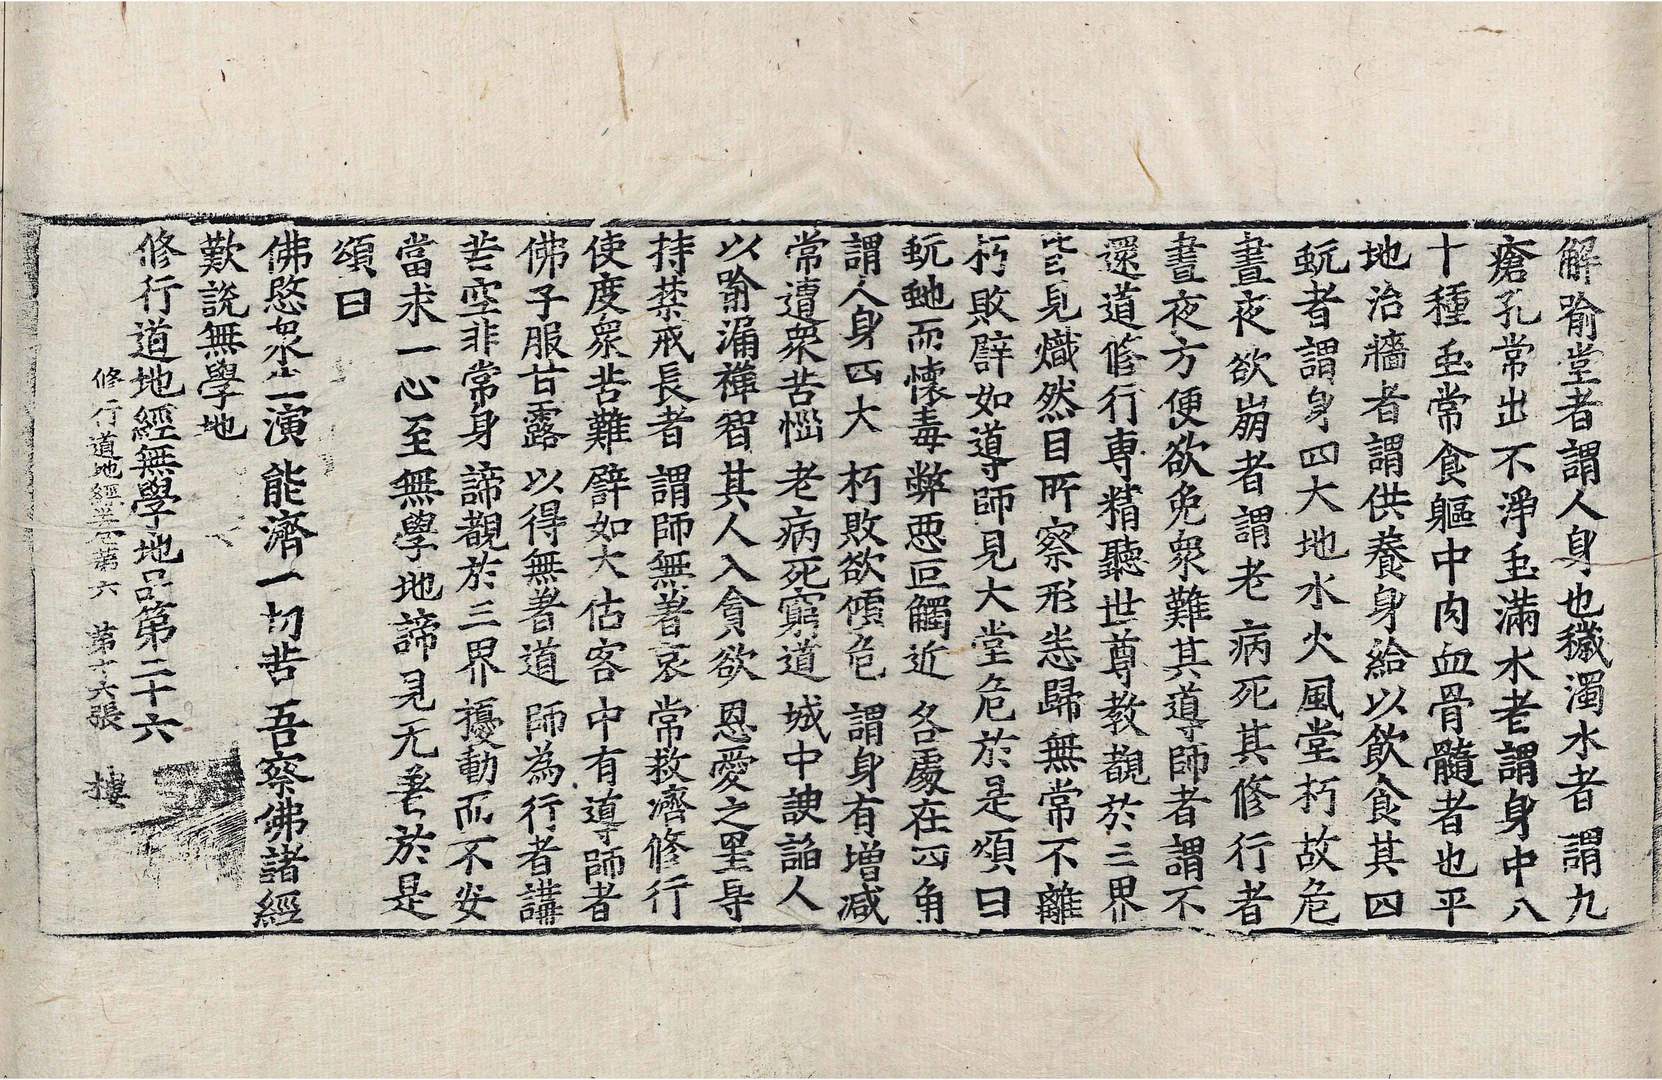 解喻堂者謂人身也穢濁水者謂九
瘡孔常出不淨玉滿水老謂身中八
十種玉常食軀中肉血骨髓者也平
地治牆者謂供養身給以飲食其四
蚖者謂身四大地水火風堂朽故危
晝夜欲崩者謂老病死其修行者
晝夜方便欲免衆難其導師者謂不
還道修行專精聽世尊教觀於三界
皆見熾然目所察形恙歸無常不離
朽敗譬如導師見大堂危於是頌曰
蚖虵而懷毒弊惡叵觸近 各處在四角
謂人身四大 朽敗欲傾危 謂身有增减
常遭衆苦惱 老病死窮道 城中諛諂人
以喻漏禪智 其人入貪欲 恩愛之里㝵
持禁戒長者 謂師無著哀 常救濟修行
使度衆苦難 譬如大估客 中有導師者
佛子服甘露 以得無著道 師為行者講
苦空非常身 諦觀於三界 擾動而不安
當求一心至無學地諦見无著於是
頌曰
佛愍衆生演 能濟一切苦 吾察佛諸經
歎說無學地
修行道地經無學地品第二十六
修行道地經卷第六 第十六張 樓